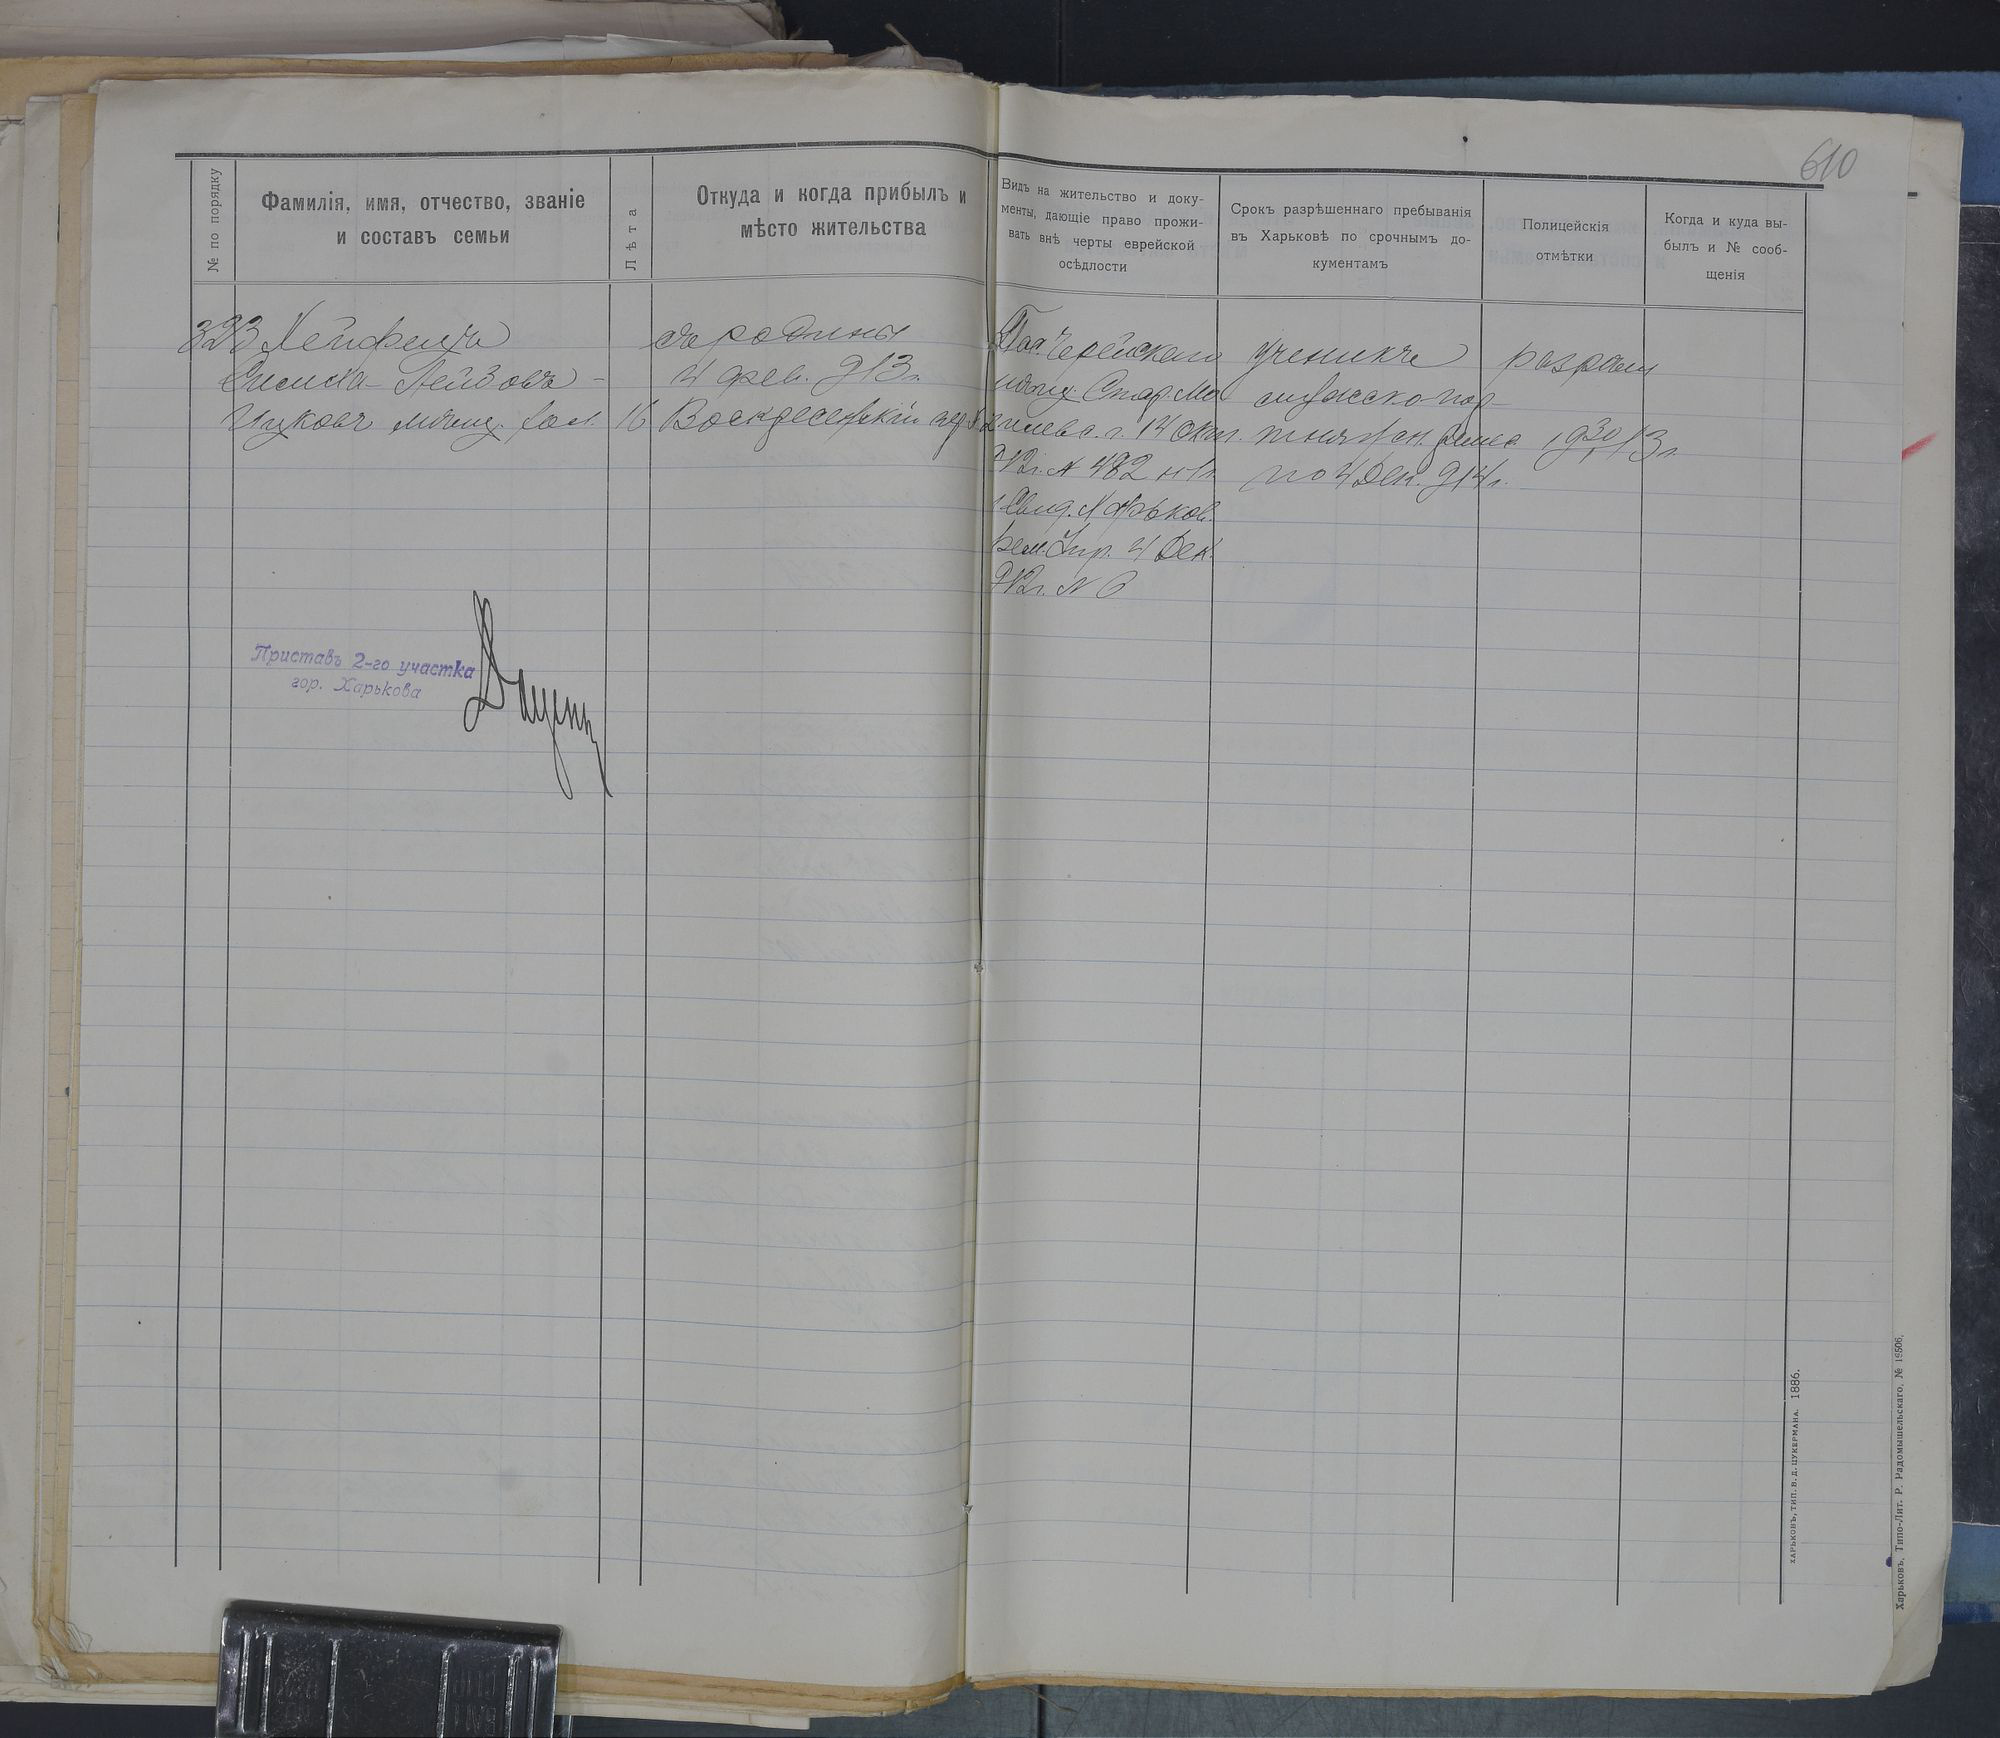 610
№ по порядку
Фамилія, имя, отчество, званіе
и составъ семьи
Лѣта
Откуда и когда прибылъ и
мѣсто жительства
Видъ на жительство и доку-
менты, дающіе право прожи-
вать внѣ черты еврейской
осѣдлости
Срокъ разрѣшеннаго пребыванія
въ Харьковѣ по срочнымъ до-
кументамъ
Полицейскія
отмѣтки
Когда и куда вы-
былъ и № сооб-
щенія
323 Хейфецъ
Лейзовъ-
Ицковъ мѣщ. 16
съ родины
4 фев. 913 г.
Воскресенскій пер. № 2
Пас. Черейскаго
мѣщ. Стар. Мо
гилевс. г. 14 Окт.
912 г. № 482 н 1 г.
Свид. Харьков.
Рем. Упр. 4 Дек.
912 г. № 6
ученикъ
мужско пор-
тняжн. ремес.
по 4 Дек. 914 г.
разрѣш
Приставъ 2-го участка
гор. Харькова
ХАРЬКОВЪ, ТИП. В. Д. ЦУКЕРМАНА. 1886.
Харьковъ, Типо-Лит. Р. Радомышельскаго, № 19506.